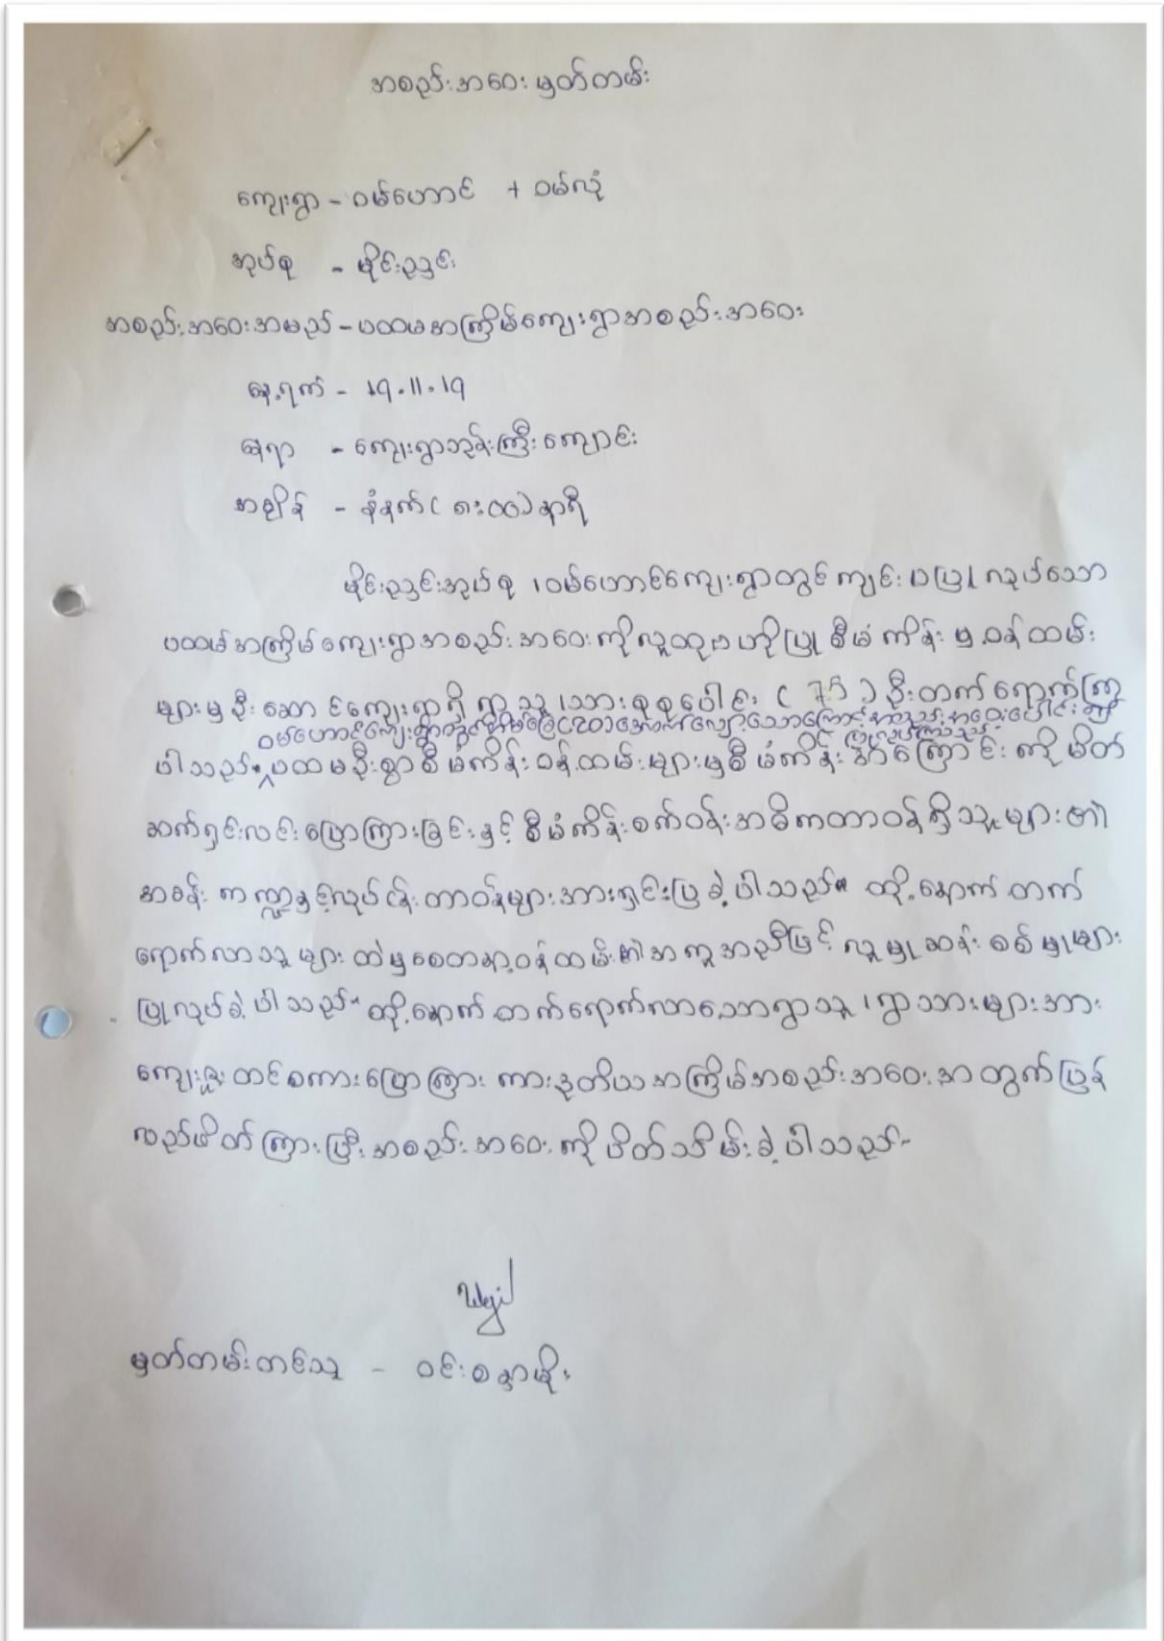 အစည်းအဝေးမှတ်တမ်း
ကျေးရွာ - ဝမ်ဟောင် + ဝမ်လုံ
အုပ်စု - မိုင်းညှင်း
အစည်းအဝေးအမည် - ပထမအကြိမ်ကျေးရွာအစည်းအဝေး
နေ့ရက် - 19.11.19
နေရာ - ကျေးရွာဘုန်းကြီးကျောင်း
အချိန် - နံနက် ( ၈း၀၀ ) နာရီ
မိုင်းညှင်းအုပ်စု ၊ ဝမ်ဟောင်ကျေးရွာတွင် ကျင်းပပြုလုပ်သော
ပထမအကြိမ်ကျေးရွာအစည်းအဝေးကို လူထုဗဟိုပြုစီမံကိန်းမှ ဝန်ထမ်း
များမှ ဦးဆောင်ကျေးရွာရှိ ရွာသူ ၊ သား စုစုပေါင်း ( 75 ) ဦး တက်ရောက်ကြ
ဝမ်ဟောင်ကျေးရွာတွင်အိမ်ခြေ အောက်လျော့သောကြောင့် အစည်းအဝေးပေါင်း၍
ပြုလုပ်ကြသည်
ပါသည်။ ပထမဦးစွာ စီမံကိန်းဝန်ထမ်းများမှ စီမံကိန်းအကြောင်းကို မိတ်
ဆက်ရှင်းလင်းပြောကြားခြင်းနှင့် စီမံကိန်းစက်ဝန်း အဓိကတာဝန်ရှိသူများ၏
အခန်းကဏ္ဍနှင့်လုပ်ငန်းတာဝန်များအား ရှင်းပြခဲ့ပါသည်။ ထို့နောက် တက်
ရောက်လာသူများထဲမှ စေတနာ့ဝန်ထမ်း၏ အကူအညီဖြင့် လူမှုဆန်းစစ်မှုများ
ပြုလုပ်ခဲ့ပါသည်။ ထို့နောက် တက်ရောက်လာသော ရွာသူ ၊ ရွာသားများအား
ကျေးဇူးတင်စကားပြောကြားကာ ဒုတိယအကြိမ်အစည်းအဝေးအတွက် ပြန်
လည်ဖိတ်ကြားပြီး အစည်းအဝေးကို ပိတ်သိမ်းခဲ့ပါသည်။
မှတ်တမ်းတင်သူ - ဝင်းစန္ဒာမိုး